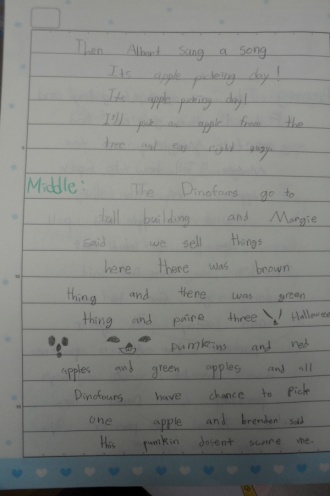 Then Albert sang a song
Its apple picking day!
Its apple picking day!
I'll pick an apple from the
tree and eat right away
Middle: The Dinofours go to
tall building and Margie
said we sell things
here there was brown
thing and there was green
thing and three Halloween
pumkins and red
apples and green apples and all
Dinofours have chance to pick
one apple and brendon said
This pumkin dosent scare me.